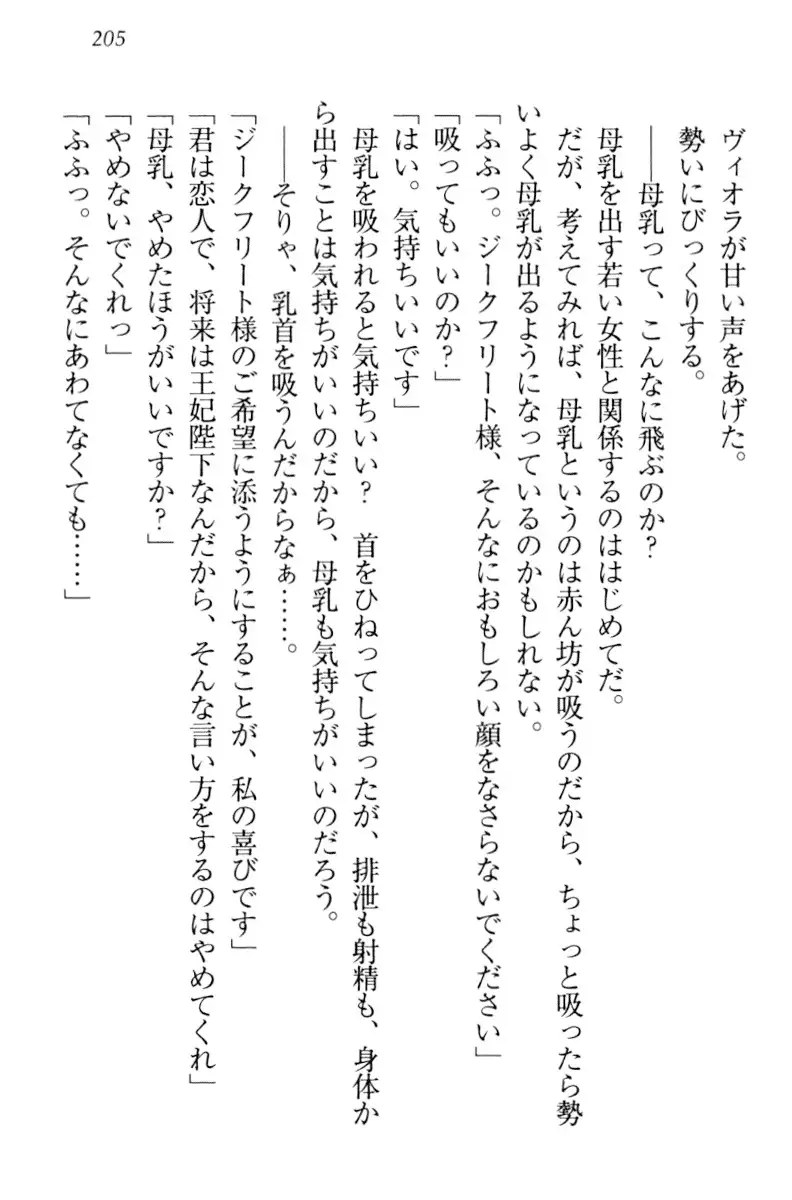 205
ヴィオラが甘い声をあげた。
勢いにびっくりする。
――母乳って、こんなに飛ぶのか?
母乳を出す若い女性と関係するのははじめてだ。
だが、考えてみれば、母乳というのは赤ん坊が吸うのだから、ちょっと吸ったら勢
いよく母乳が出るようになっているのかもしれない。
「ふふっ。ジークフリート様、そんなにおもしろい顔をなさらないでください」
「吸ってもいいのか?」
「はい。気持ちいいです」
母乳を吸われると気持ちいい? 首をひねってしまったが、排泄も射精も、身体か
ら出すことは気持ちがいいのだから、母乳も気持ちがいいのだろう。
――そりゃ、乳首を吸うんだからなぁ……。
「ジークフリート様のご希望に添うようにすることが、私の喜びです」
「君は恋人で、将来は王妃陛下なんだから、そんな言い方をするのはやめてくれ」
「母乳、やめたほうがいいですか?」
「やめないでくれっ」
「ふふっ。そんなにあわてなくても……」